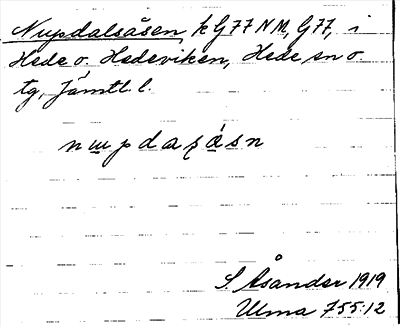 Nupdalsåsen, k G77 NM, G77, i
Hede o. Hedeviken, Hede sn o.
tg, Jämtl. l.
nupdaʂåsn
S Åsander 1919
Ulma 755:12